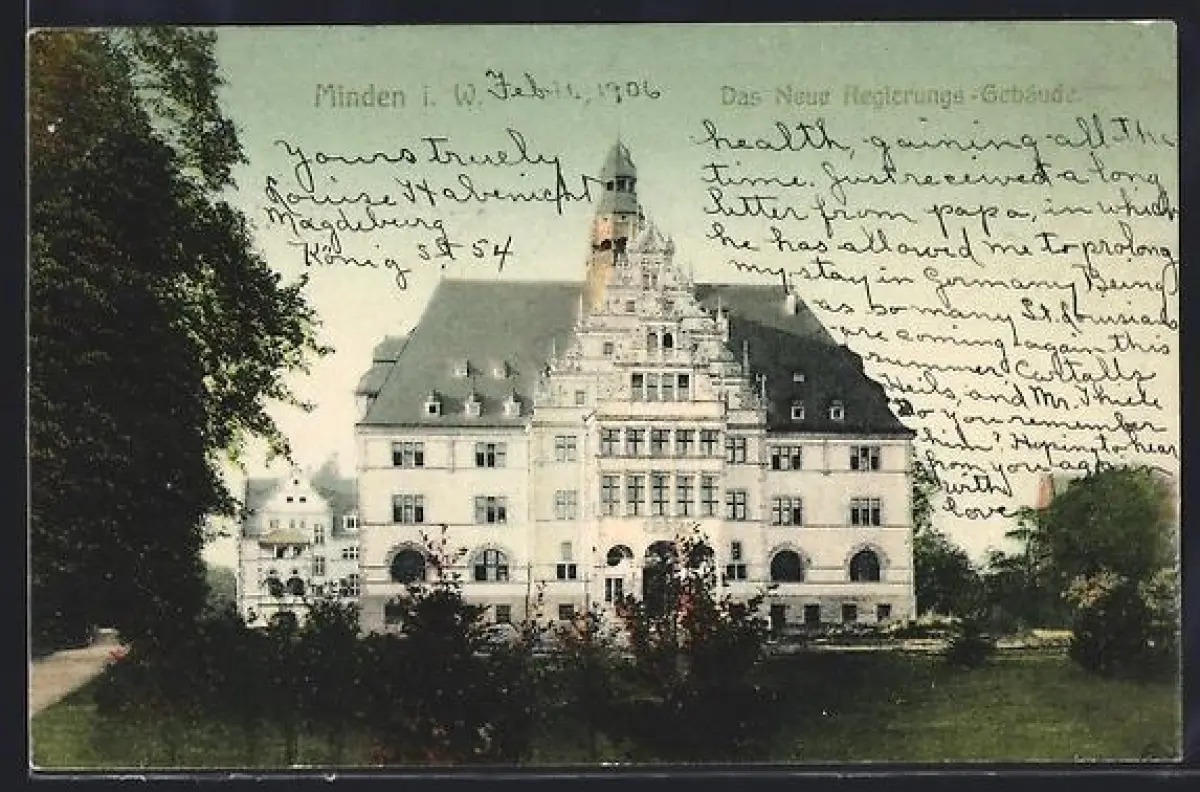 Minden i. W. Feb 11, 1906
Das Neue Regierungs-Gebäude.
health, gaining all the
time. Just received a long
letter from papa, in which
he has allowed me to prolong
my stay in Germany Being
as so many St. Louisians
are coming again this
summer
Heils, and Mr. Thiele
Do you remember
him? Hoping to hear
from you again
with
love
Yours truely
Louise Habenicht
Magdeburg
König St 54